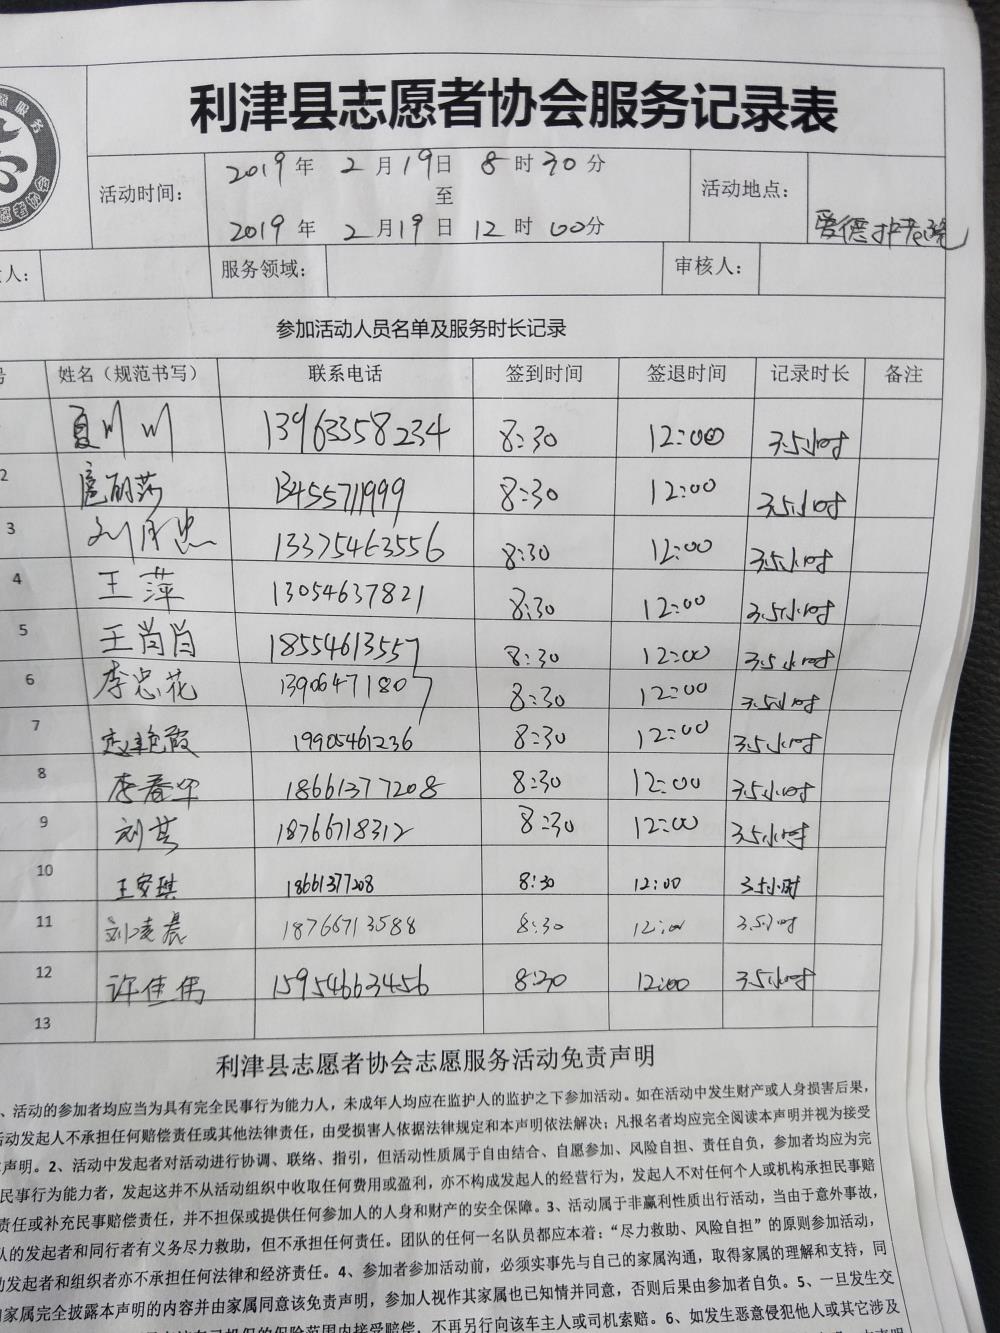 利津县志愿者协会服务记录表
活动时间： 2019年 2月19日 8时30分 活动地点：
至
2019年 2月19日 12时00分 爱德护老院
人： 服务领域： 审核人：
参加活动人员名单及服务时长记录
号 姓名（规范书写） 联系电话 签到时间 签退时间 记录时长 备注
夏川川 13963358234 8:30 12:00 3.5小时
2 扈丽莎 13455711999 8:30 12:00 3.5小时
3 刘月忠 13375463556 8:30 12:00 3.5小时
4 王萍 13054637821 8:30 12:00 3.5小时
5 王肖肖 18554613557 8:30 12:00 3.5小时
6 李忠花 13906471807 8:30 12:00 3.5小时
7 赵艳霞 19905461236 8:30 12:00 3.5小时
8 李春华 18661377208 8:30 12:00 3.5小时
9 刘芬 18766718312 8:30 12:00 3.5小时
10 王安琪 18661377208 8:30 12:00 3.5小时
11 刘凌晨 18766713588 8:30 12:00 3.5小时
12 许佳伟 15954663456 8:30 12:00 3.5小时
13
利津县志愿者协会志愿服务活动免责声明
、活动的参加者均应当为具有完全民事行为能力人，未成年人均应在监护人的监护之下参加活动。如在活动中发生财产或人身损害后果，
活动发起人不承担任何赔偿责任或其他法律责任，由受损害人依据法律规定和本声明依法解决；凡报名者均应完全阅读本声明并视为接受
声明。2、活动中发起者对活动进行协调、联络、指引，但活动性质属于自由结合、自愿参加、风险自担、责任自负，参加者均应为完
民事行为能力者，发起这并不从活动组织中收取任何费用或盈利，亦不构成发起人的经营行为，发起人不对任何个人或机构承担民事赔
责任或补充民事赔偿责任，并不担保或提供任何参加人的人身和财产的安全保障。3、活动属于非赢利性质出行活动，当由于意外事故，
队的发起者和同行者有义务尽力救助，但不承担任何责任。团队的任何一名队员都应本着：“尽力救助、风险自担”的原则参加活动，
动发起者和组织者亦不承担任何法律和经济责任。4、参加者参加活动前，必须实事先与自己的家属沟通，取得家属的理解和支持，同
家属完全披露本声明的内容并由家属同意该免责声明，参加人视作其家属也已知情并同意，否则后果由参加者自负。5、一旦发生交
保的保险范围内接受赔偿，不再另行向该车主人或司机索赔。6、如发生恶意侵犯他人或其它涉及